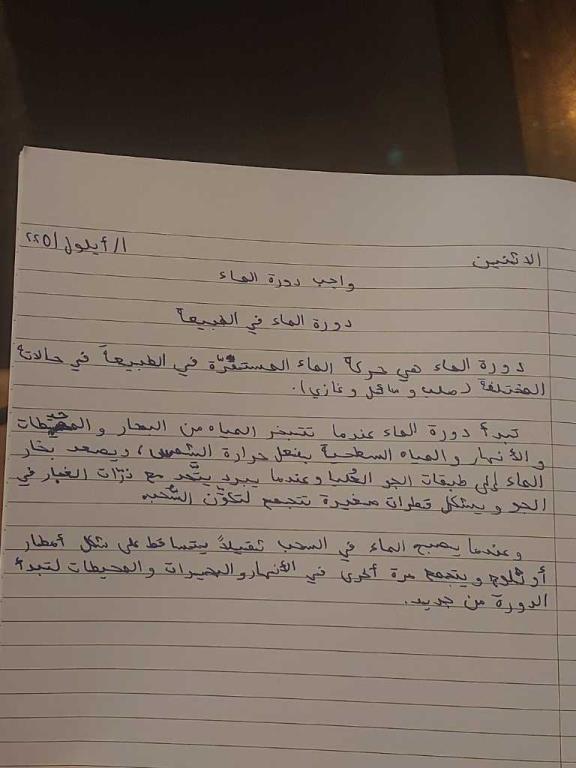 الاثنين
١/أيلول/٢٠٢٥
واجب دورة الماء
دورة الماء في الطبيعة
دورة الماء هي حركة الماء المستمرّة في الطبيعة في حالاته
المختلفة (صلب و سائل و غازي).
تبدأ دورة الماء عندما تتبخر المياه من البحار و المحيطات
و الأنهار و المياه السطحية بفعل حرارة الشمس، ويصعد بخار
الماء إلى طبقات الجو العُليا وعندما يبرد يتّحد مع ذرّات الغبار في
الجو و يشكل قطرات صغيرة تتجمع لتكوّن السُّحب.
و عندما يصبح الماء في السحب ثقيلاً يتساقط على شكل أمطار
أو ثلوج و يتجمع مرة أخرى في الأنهار والبحيرات و المحيطات لتبدأ
الدورة من جديد.